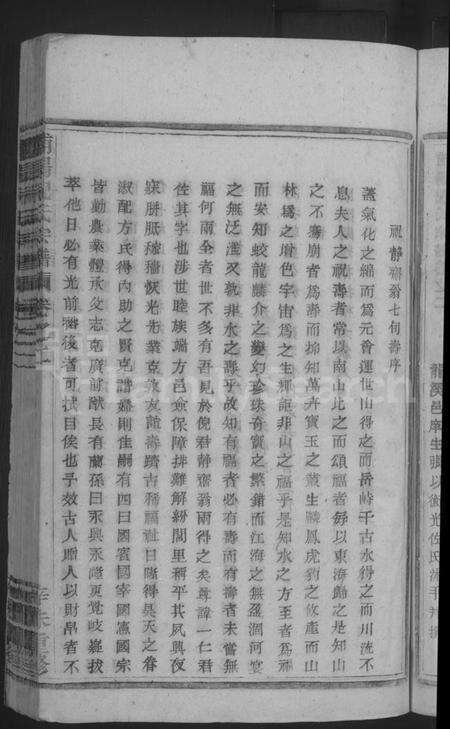 祝靜齋翁七旬壽序
龍溪邑庠生張以
蓋氣化之綿而爲元會運世山得之而岳峙千古水得之而川流不
息夫人之祝壽者常以南山比之而頌福者每以東海飴之是知山
之不騫崩者爲壽而抑知萬卉寶玉之叢生麟鳳虎豹之攸產而山
林爲之增色宇宙爲之生輝詎非山之福乎是知水之方至者爲福
而安知蛟龍麟介之變幻珍珠奇寶之繁錯而江海之無盈涸河宴
之無泛濫又孰非水之壽乎故知有福者必有壽而有壽者未嘗無
福何兩全者世不多有吾見於倪君靜齋翁兩得之矣尊諱一仁君
佐其字也涉世睦族端方邑僉保障排難解紛閭里稱平其夙興夜
寐胼胝稼穡恢光先業克永友誼壽躋古稀福社日隆得昊天之眷
淑配方氏得內助之賢克諧婚則佳嗣有四曰國賓國宰國憲國宗
皆勤農業體承父志克廣前猷長有蘭孫曰永興永隆更覺岐嶷拔
萃他日必有光前裕後者可拭目俟也予效古人贈人以財帛者不